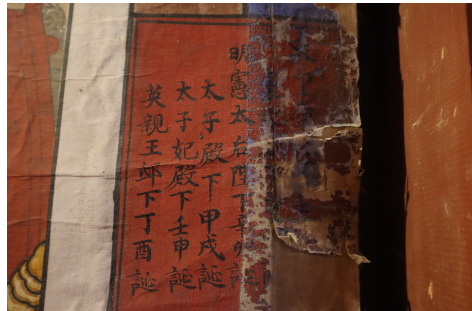 明憲太后陛下辛卯誕
太子殿下甲戌誕
太子妃殿下壬申誕
英親王邸下丁酉誕